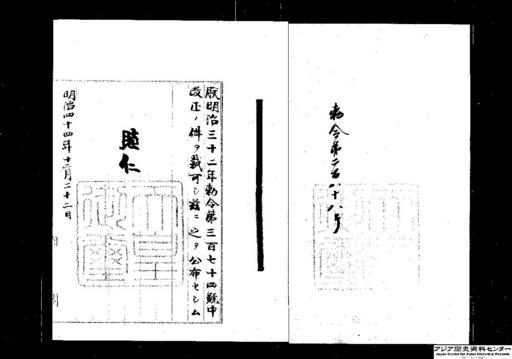 勅令第二百八十八号
朕明治三十二年勅令第三百七十四号中
改正ノ件ヲ裁可シ茲ニ之ヲ公布セシム
睦仁
天皇御璽
明治四十四年十二月二十二日
内
閣
アジア歴史資料センター
Japan Center for Asian Historical Records